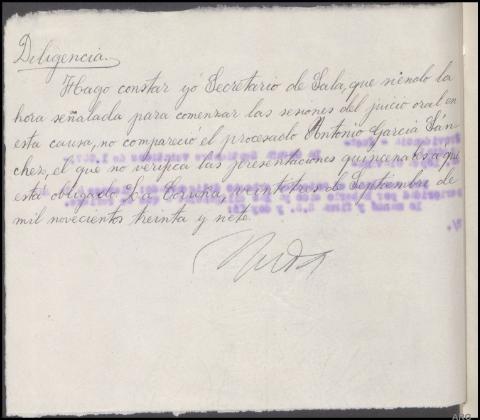 Diligencia.
Hago constar yó Secretario de Sala, que siendo la
hora señalada para comenzar las sesiones del juicio oral en
esta causa, no compareció el procesado Antonio Garcia Sán-
chez, el que no verifica las presentaciones quincenales a que
está obligado. La Coruña, veintitres de Septiembre de
mil novecientos treinta y siete.